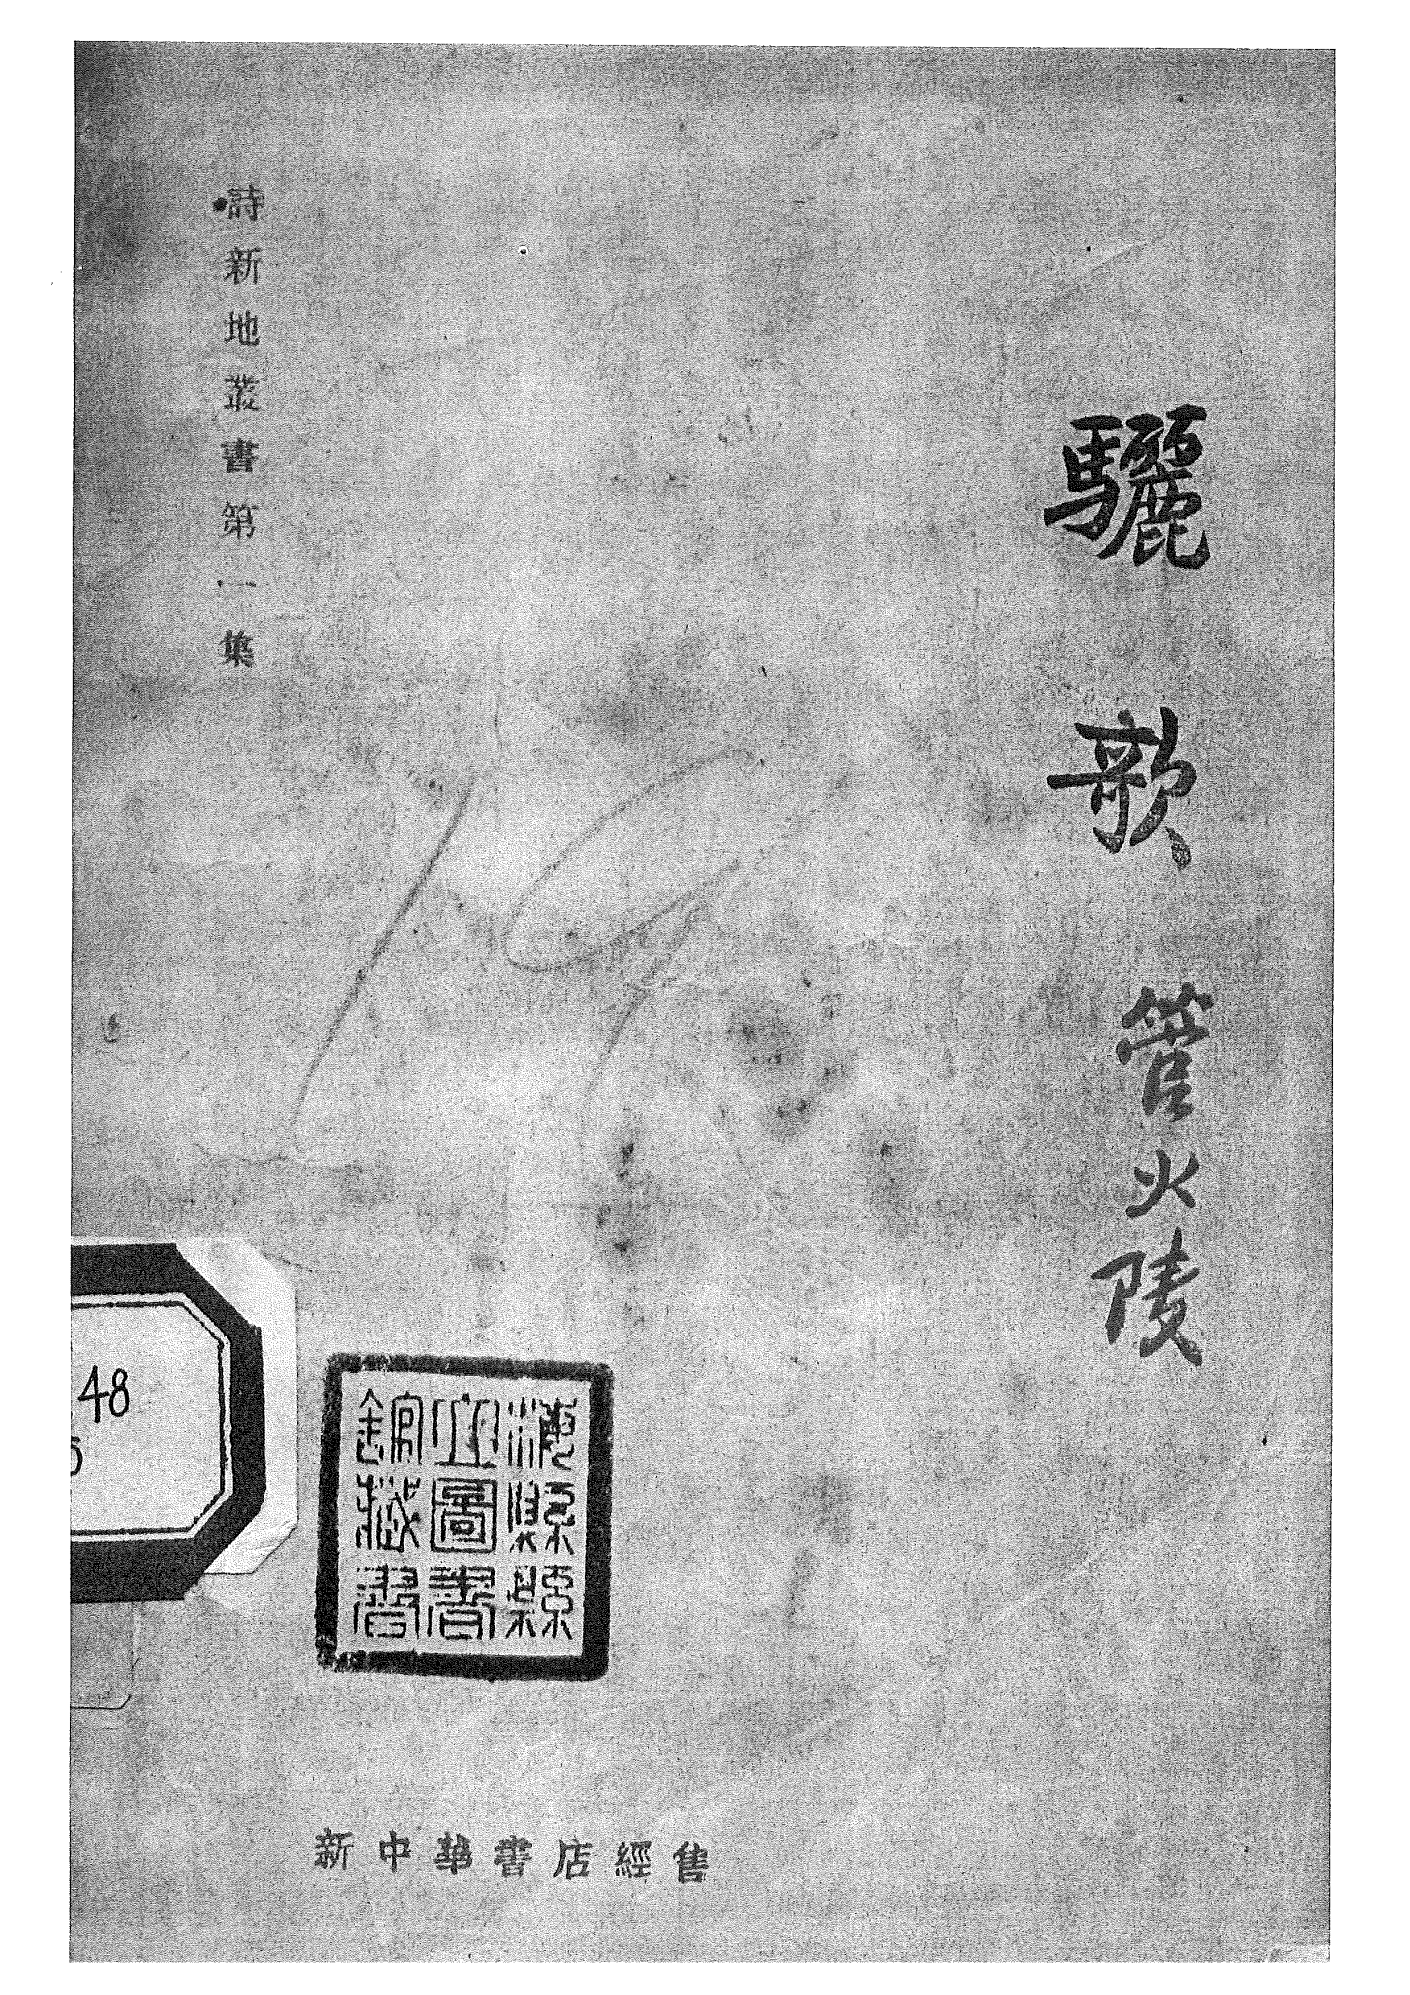 驪歌
管火陵
詩新地叢書第一集
縣
立圖書
館藏書
48
5
新中華書店經售